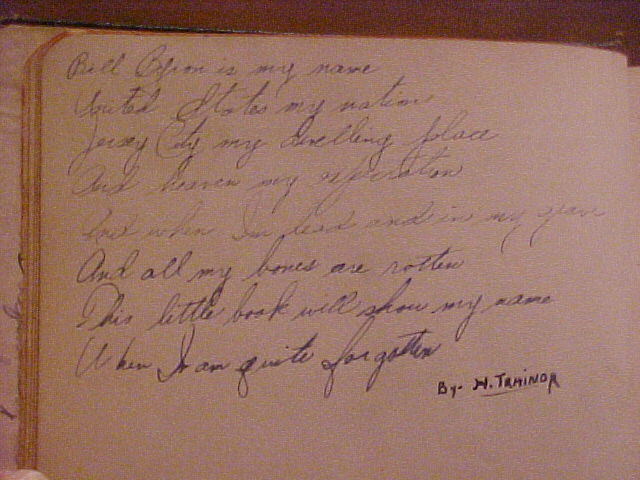 Bill Byron is my name
United States my nation
Jersey City my dwelling place
And heaven my expiration
And when I'm dead and in my grave
And all my bones are rotten
This little book will show my name
When I am quite forgotten
By- H. TRAINOR